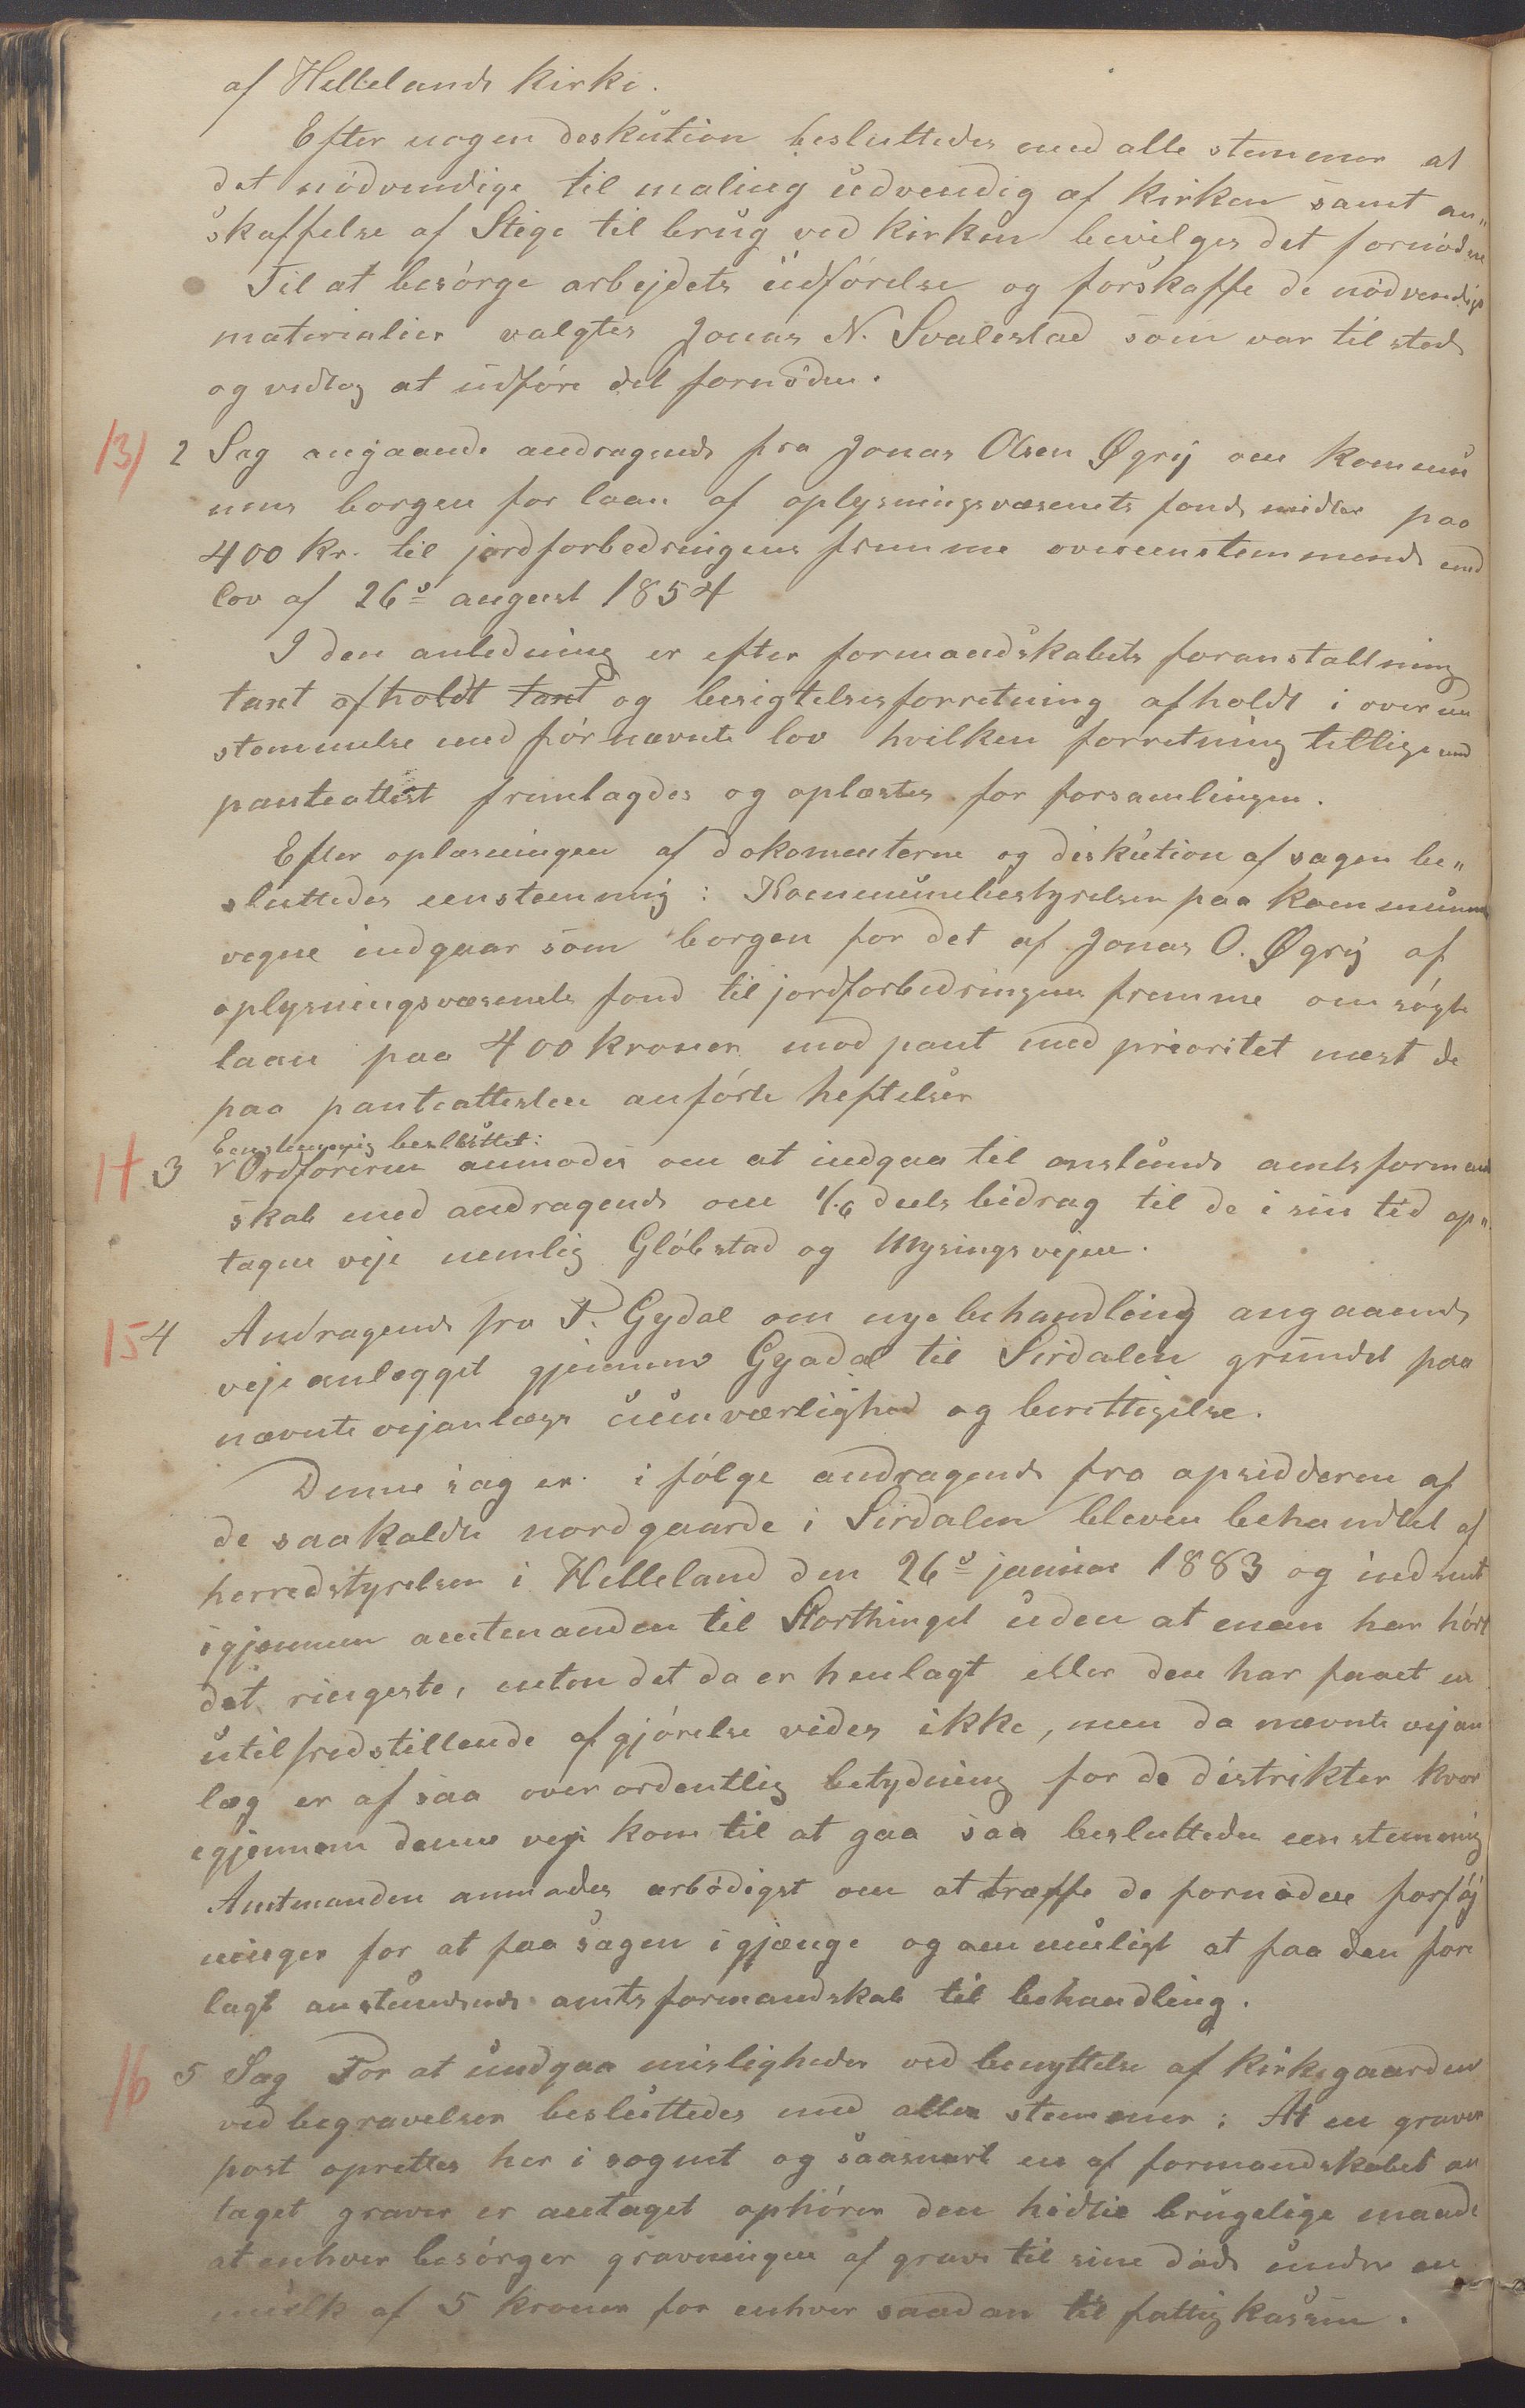 af Hellelands kirke.
Efter nogen deskution besluttedes med alle stemmer at
det nödvendige til maling udvendig af kirken samt an„
skaffelse af Stige til brug ved kirken bevilges det fornödne
Til at besörge arbejdets udförelse og forskaffe de nödvendige
materialier valgtes Jonas N. Svalestad som var tilsted
og vedtog at udföre det fornödne.
13/ 2 Sag angaaende andragende fra Jonas Olsen Øgrij om kommu
nens borgen for laan af oplysningsvæsenets fonds midler paa
400 kr. til jordforbedringens fremme overeenstemmende med
lov af 26s august 1854
I den anledning er efter formandskabets foranstaltning
taxt afholdt taxt og besigtelsesforretning afholdt i overeen
stemmelse med förnævnte lov hvilken forretning tillige med
panteattest fremlagdes og oplæstes for forsamlingen.
Efter oplæsningen af dokomenterne og diskution af sagen be„
sluttedes eenstemmig: Kommunebestyrelsen paa kommunens
vegne indgaar som borgen for det af Jonas O. Øgrij af
oplysningsvæsenets fond til jordforbedringens fremme omsögte
laan paa 400 kroner mod pant med prioritet næst de
paa panteattesten anförte heftelser
Eenstemmig besluttet:
14 3 Ordföreren anmodes om at indgaa til anstunde amtsformand
skab med andragende om 1/6 deels bidrag til de i sin tid op„
tagne veje nemlig Glöbstad og Mysingsvejen.
15 4 Andragende fra P. Gydal om nye behandling angaaende
veje anlægget gjennem Gyadal til Sirdalen grundet paa
nævnte vejanlægs uumværlighed og berettigelse.
Denne sag er i fölge andragende fra opsidderen af
de saakaldte nordgaarde i Sirdalen bleven behandlet af
herredstyrelsen i Helleland den 26s januar 1883 og indsent
igjennem amtmanden til Storthinget uden at man har hört
det ringeste, enten det da er henlagt eller den har faaet en
utilfredstillende afgjörelse vides ikke, men da nævnte vejan
læg er af saa overordentlig betydning for de distrikter hvor
igjennem denne vej kom til at gaa saa besluttedes eenstemmig
Amtmanden anmodes ærbödigst om at træffe de fornödne forföj
ninger for at faa sagen igjænge og om muligt at faa den fore
lagt anstundende amtsformandskab til behandling.
16 5 Sag For at undgaa misligheder ved benyttelse af kirkegaarden
ved begravelser besluttedes med alle stemmer: At en graver
post oprettes her i sognet og saasnart en af formandskabet an
taget graver er antaget ophörer den hidtil brugelige maade
at enhver besörger gravningen af grave til sine döde under en
mulk af 5 kroner for enhver saadan til fattigkassen.